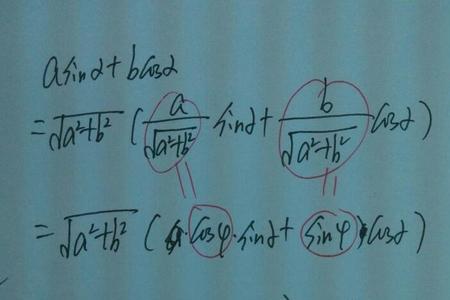 a sinα + b cosα
= √(a²+b²) ( a/√(a²+b²) sinα + b/√(a²+b²) cosα )
|| ||
= √(a²+b²) ( cosφ · sinα + sinφ · cosα )